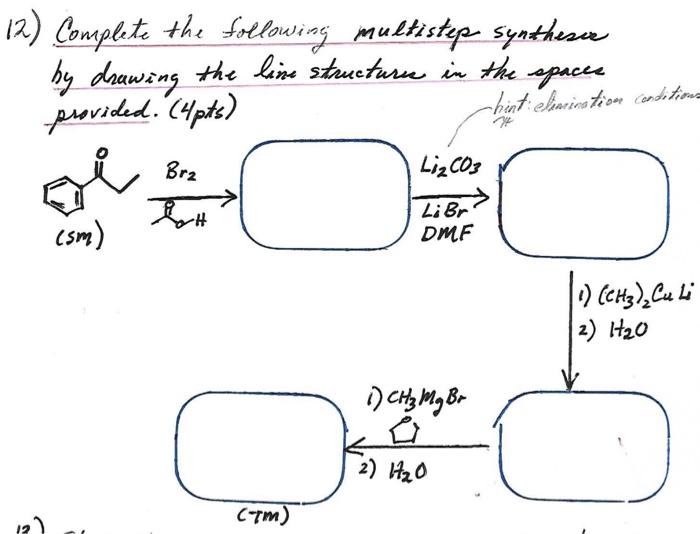 12) Complete the following multistep syntheses
by drawing the line structures in the spaces
provided. (4pts)
hint: elimination conditions
O
Br2
O
O-H
(SM)
Li2CO3
LiBr
DMF
1) (CH3)2CuLi
2) H2O
1) CH3MgBr
O
2) H2O
(TM)